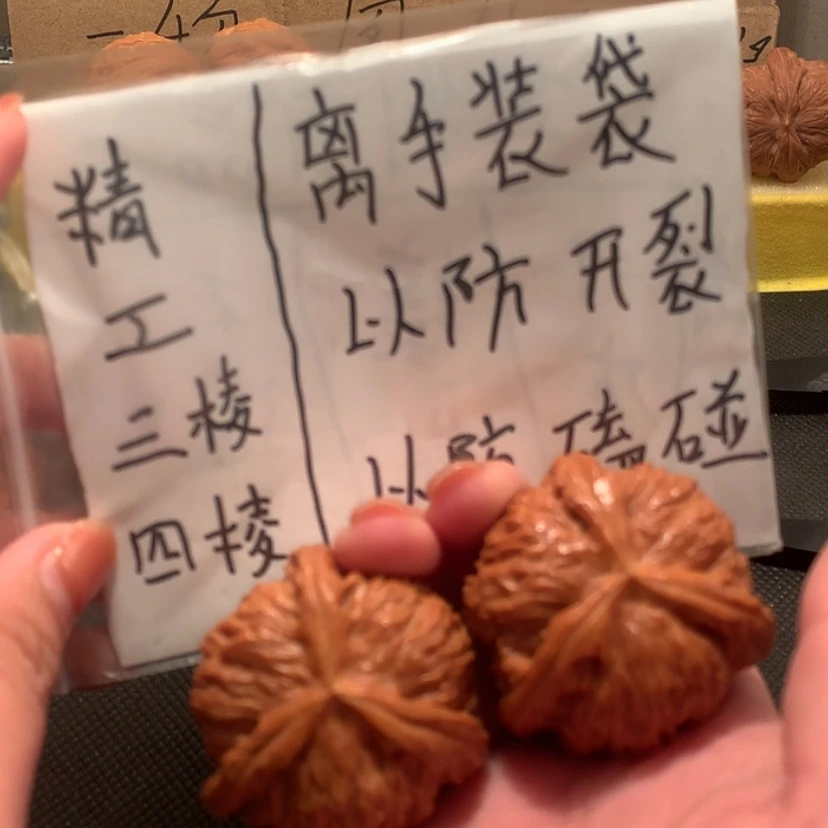 精
工
三棱
四棱
离手装袋
以防开裂
以防磕碰